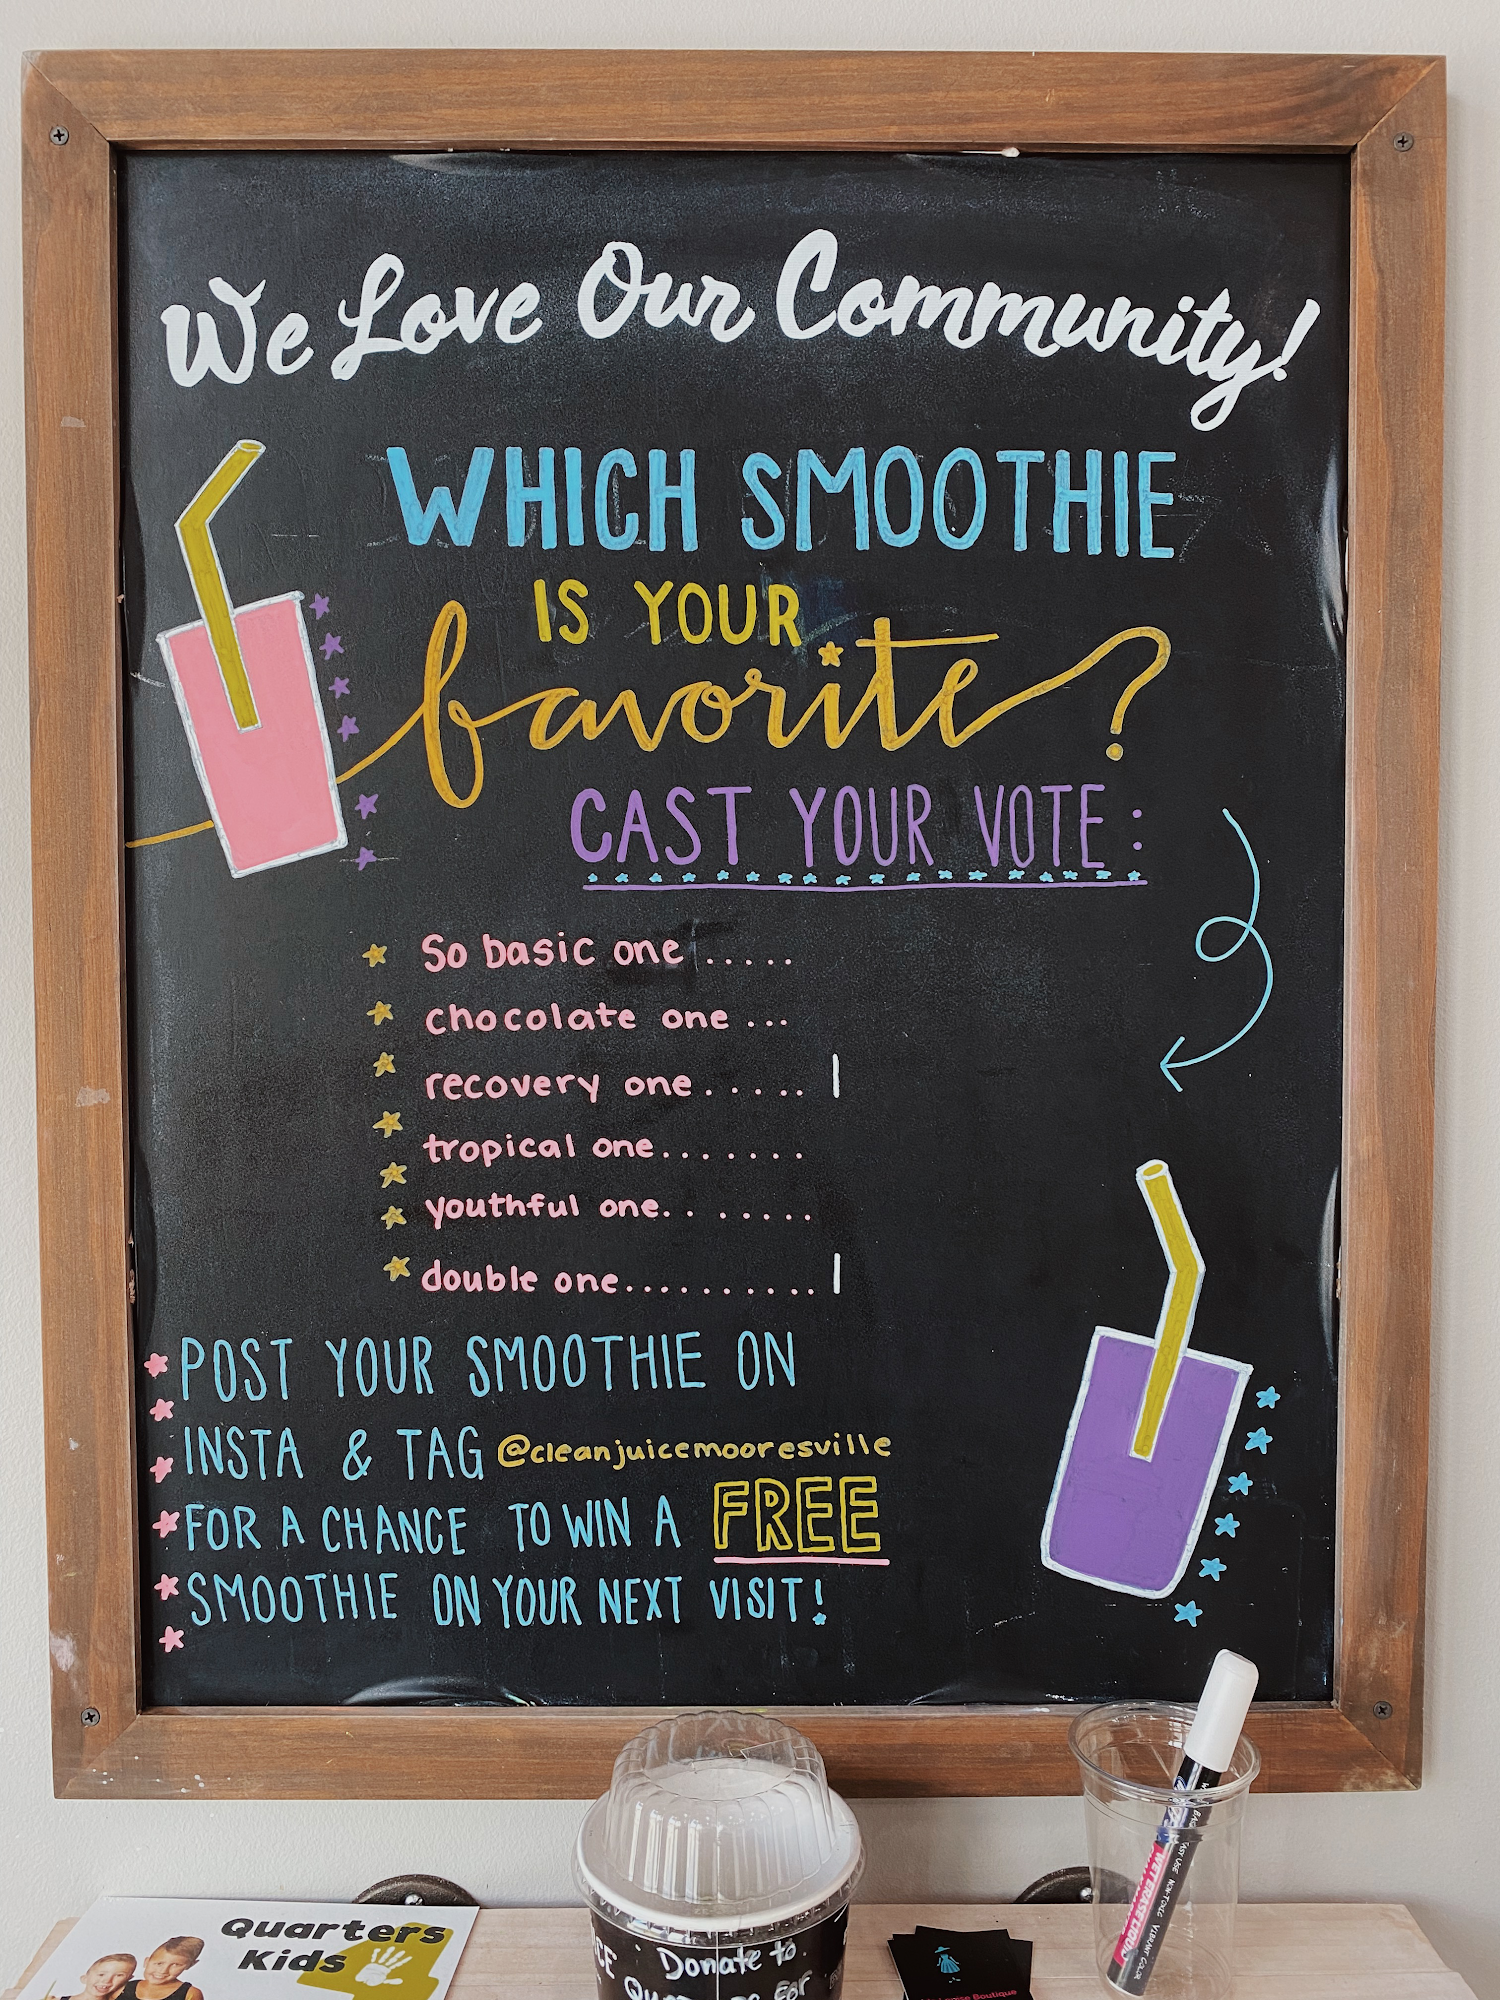 We Love Our Community!
WHICH SMOOTHIE
IS YOUR
favorite?
CAST YOUR VOTE:
So basic one .....
chocolate one ...
recovery one ..... |
tropical one.......
youthful one.......
double one.......... |
POST YOUR SMOOTHIE ON
INSTA & TAG @cleanjuicemooresville
FOR A CHANCE TO WIN A FREE
SMOOTHIE ON YOUR NEXT VISIT!
Quarters
Kids
Donate to
For
Boutique
WET ERASE LIQUID
EASY USE NON-TOXIC VIBRANT COLOR